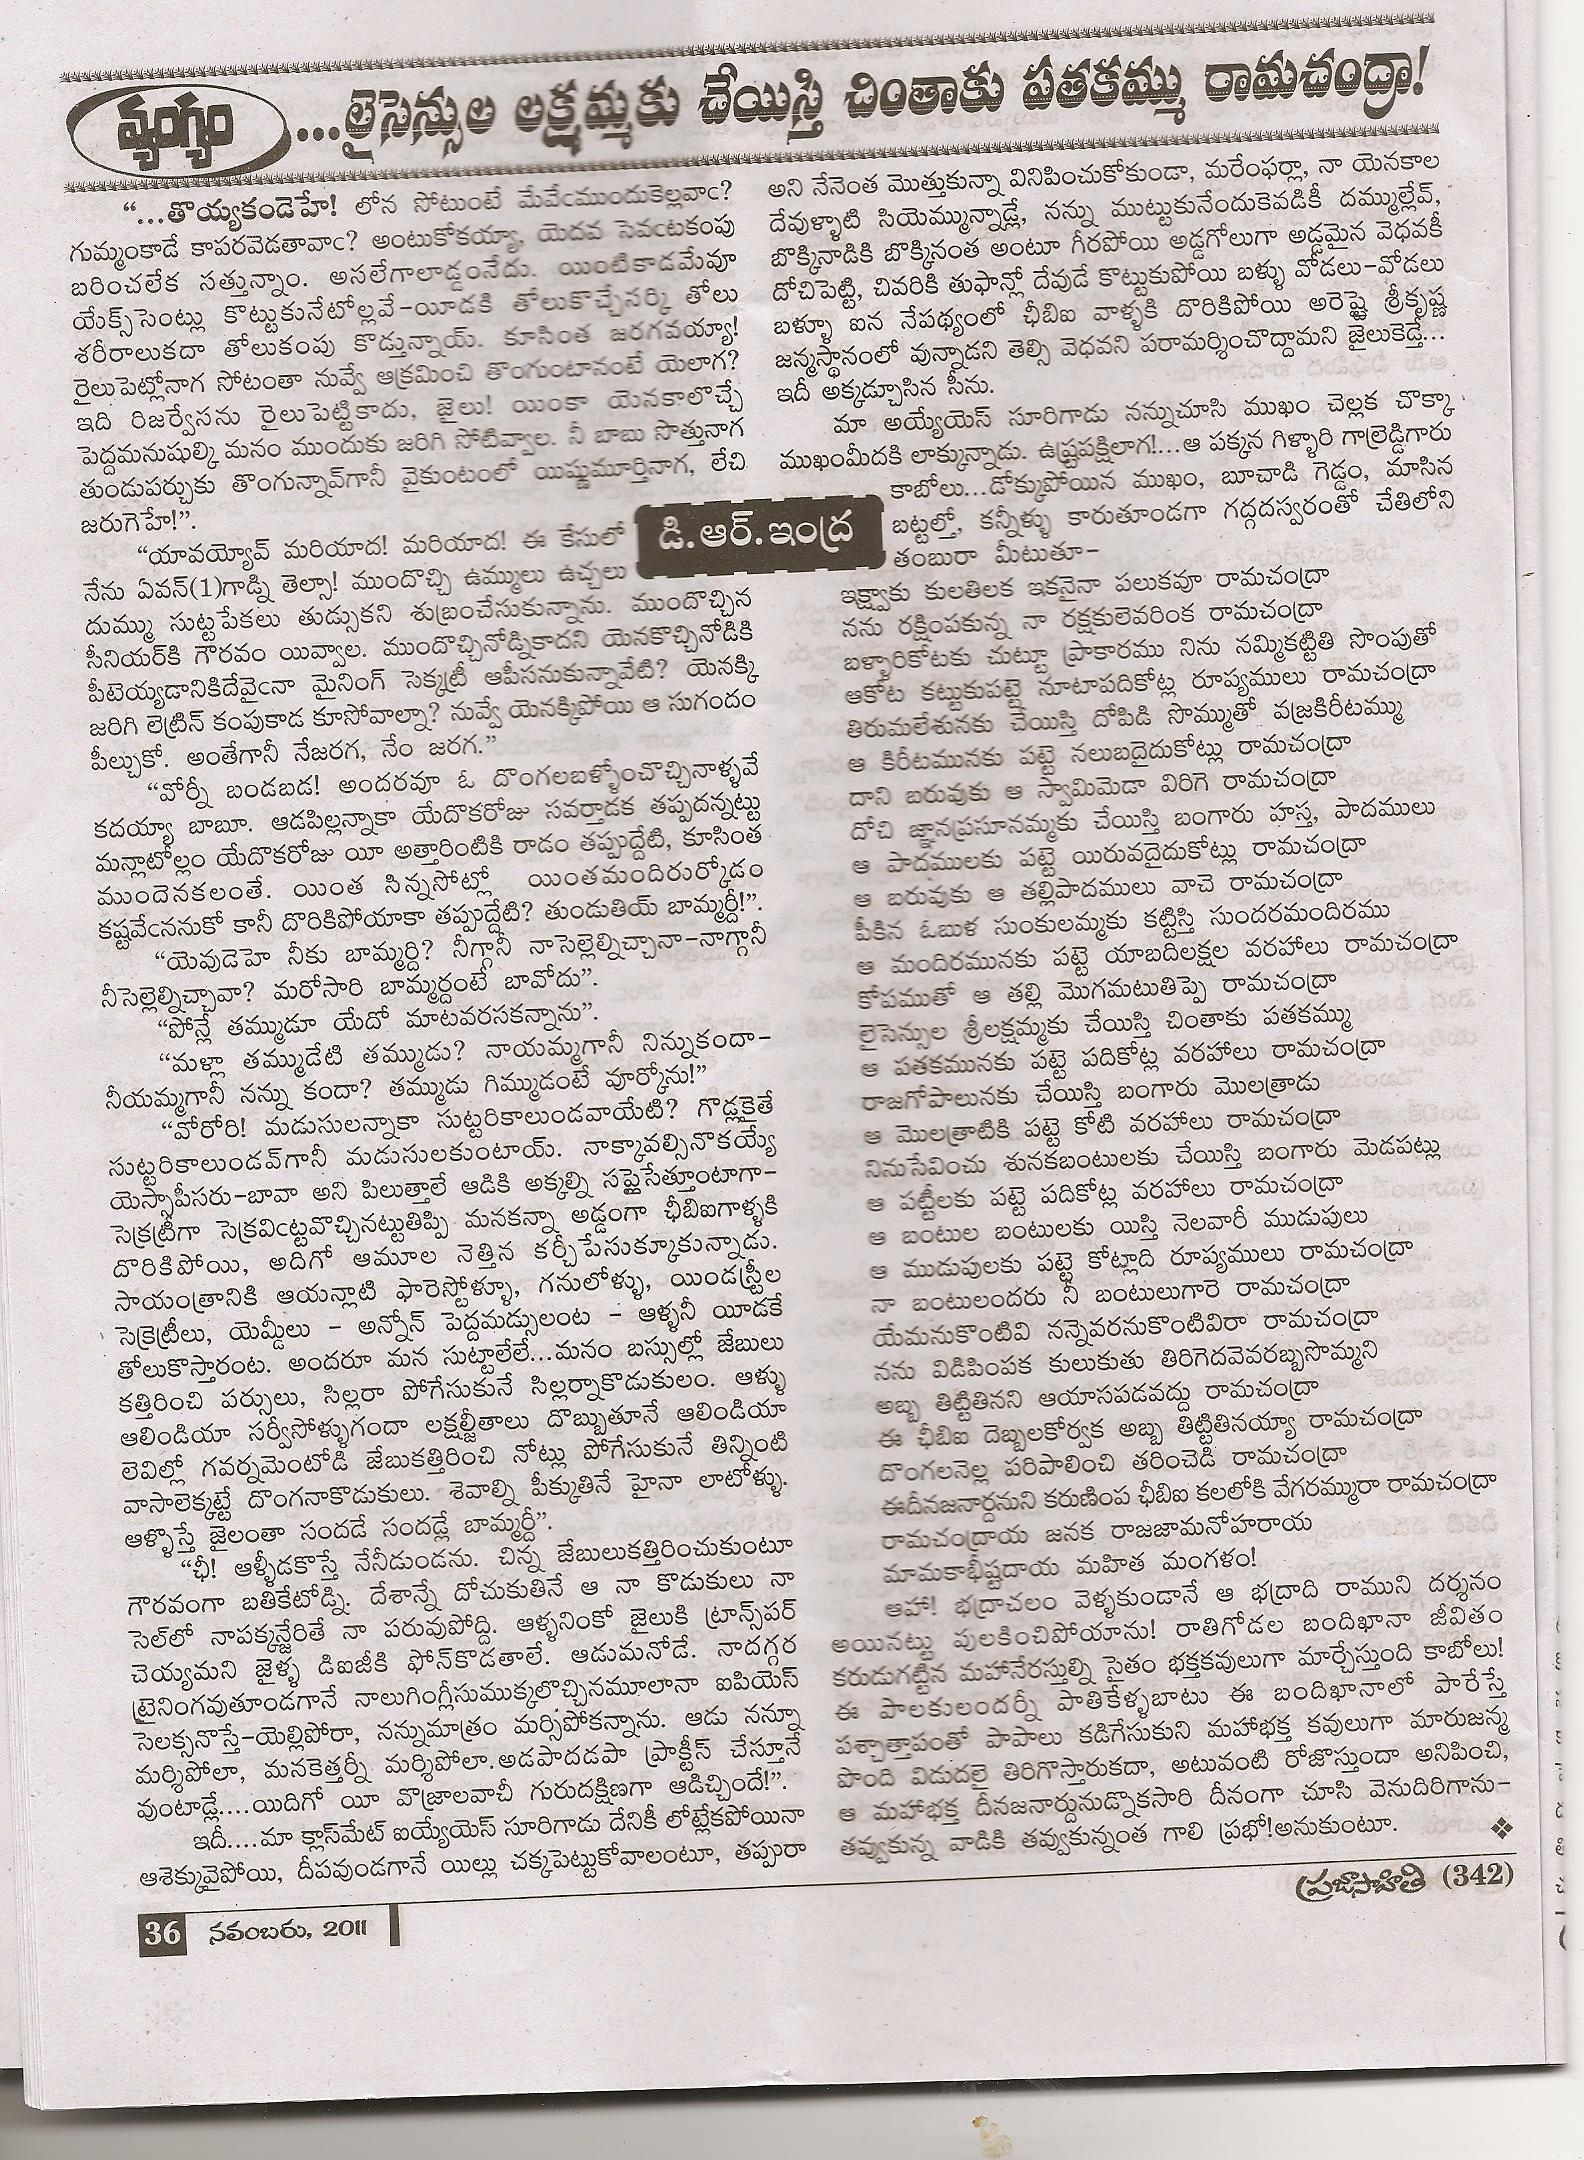 వ్యంగ్యం
...లైసెన్సుల లక్ష్మమ్మకు చేయిస్తి చింతాకు పతకమ్ము రామచంద్రా!
“...తొయ్యకండెహే! లోన సోటుంటే మేవేఁముందుకెల్లవాఁ?
గుమ్మంకాడే కాపరవెడతావాఁ? అంటుకోకయ్యా, యెదవ సెవఁటకంపు
బరించలేక సత్తున్నాం. అసలేగాలాడ్డంనేదు. యింటికాడమేవూ
యేక్స్‌సెంట్లు కొట్టుకునేటోల్లవే-యీడకి తోలుకొచ్చేసర్కి తోలు
శరీరాలుకదా తోలుకంపు కొడ్తున్నాయ్. కూసింత జరగవయ్యా!
రైలుపెట్లోనాగ సోటంతా నువ్వే ఆక్రమించి తొంగుంటానంటే యెలాగ?
ఇది రిజర్వేసను రైలుపెట్టికాదు, జైలు! యింకా యెనకాలొచ్చే
పెద్దమనుషుల్కి మనం ముందుకు జరిగి సోటివ్వాల. నీ బాబు సొత్తునాగ
తుండుపర్చుకు తొంగున్నావ్‌గానీ వైకుంటంలో యిష్ణుమూర్తినాగ, లేచి
జరుగెహే!”.
“యావయ్యోవ్ మరియాద! మరియాద! ఈ కేసులో
నేను ఏవన్(1)గాడ్ని తెల్సా! ముందొచ్చి ఉమ్ములు ఉచ్చలు
దుమ్ము సుట్టపేకలు తుడ్సుకని శుబ్రంచేసుకున్నాను. ముందొచ్చిన
సీనియర్‌కి గౌరవం యివ్వాల. ముందొచ్చినోడ్నికాదని యెనకొచ్చినోడికి
పీటెయ్యడానికిదేవైఁనా మైనింగ్ సెక్కట్రీ ఆపీసనుకున్నావేటి? యెనక్కి
జరిగి లెట్రిన్ కంపుకాడ కూసోవాల్నా? నువ్వే యెనక్కిపోయి ఆ సుగందం
పీల్చుకో. అంతేగానీ నేజరగ, నేం జరగ.”
“వోర్నీ బండబడ! అందరవూ ఓ దొంగలబళ్ళోంచొచ్చినాళ్ళవే
కదయ్యా బాబూ. ఆడపిల్లన్నాకా యేదొకరోజు సవర్తాడక తప్పదన్నట్టు
మన్లాటోల్లం యేదొకరోజు యీ అత్తారింటికి రాడం తప్పుద్దేటి, కూసింత
ముందెనకలంతే. యింత సిన్నసోట్లో యింతమందిరుర్కోడం
కష్టవేఁననుకో కానీ దొరికిపోయాకా తప్పుద్దేటి? తుండుతియ్ బామ్మర్దీ!”.
“యెవుడెహె నీకు బామ్మర్ది? నీగ్గానీ నాసెల్లెల్నిచ్చానా-నాగ్గానీ
నీసెల్లెల్నిచ్చావా? మరోసారి బామ్మర్దంటే బావోదు”.
“పోన్లే తమ్ముడూ యేదో మాటవరసకన్నాను”.
“మళ్లా తమ్ముడేటి తమ్ముడు? నాయమ్మగానీ నిన్నుకందా-
నీయమ్మగానీ నన్ను కందా? తమ్ముడు గిమ్ముడంటే వూర్కోను!”
“వోరోరి! మడుసులన్నాకా సుట్టరికాలుండవాయేటి? గొడ్లకైతే
సుట్టరికాలుండవ్‌గానీ మడుసులకుంటాయ్. నాక్కావల్సినొకయ్యే
యెస్సాపీసరు-బావా అని పిలుత్తాలే ఆడికి అక్కల్ని సప్లైసేత్తూంటాగా-
సెక్రట్రీగా సెక్రవిఁట్టవొచ్చినట్టుతిప్పి మనకన్నా అడ్డంగా ఛీబిఐగాళ్ళకి
దొరికిపోయి, అదిగో ఆమూల నెత్తిన కర్చీపేసుక్కూకున్నాడు.
సాయంత్రానికి ఆయన్లాటి ఫారెస్టోళ్ళూ, గనులోళ్ళు, యిండస్ట్రీల
సెక్రెట్రీలు, యెమ్డీలు - అన్నోన్ పెద్దమడ్సులంట - ఆళ్ళనీ యీడకే
తోలుకొస్తారంట. అందరూ మన సుట్టాలేలే...మనం బస్సుల్లో జేబులు
కత్తిరించి పర్సులు, సిల్లరా పోగేసుకునే సిల్లర్నాకొడుకులం. ఆళ్ళు
ఆలిండియా సర్వీసోళ్ళుగందా లక్షల్జీతాలు దొబ్బుతూనే ఆలిండియా
లెవిల్లో గవర్నమెంటోడి జేబుకత్తిరించి నోట్లు పోగేసుకునే తిన్నింటి
వాసాలెక్కట్టే దొంగనాకొడుకులు. శెవాల్ని పీక్కుతినే హైనా లాటోళ్ళు.
ఆళ్ళొస్తే జైలంతా సందడే సందడ్లే బామ్మర్దీ”.
“ఛీ! ఆళ్ళీడకొస్తే నేనీడుండను. చిన్న జేబులుకత్తిరించుకుంటూ
గౌరవంగా బతికేటోడ్ని. దేశాన్నే దోచుకుతినే ఆ నా కొడుకులు నా
సెల్‌లో నాపక్కన్జేరితే నా పరువుపోద్ది. ఆళ్ళనింకో జైలుకి ట్రాన్స్‌పర్
చెయ్యమని జైళ్ళ డిఐజీకి ఫోన్‌కొడతాలే. ఆడుమనోడే. నాదగ్గర
ట్రైనింగవుతూండగానే నాలుగింగ్లీసుముక్కలొచ్చినమూలానా ఐపియెస్
సెలక్సనొస్తే-యెల్లిపోరా, నన్నుమాత్రం మర్సిపోకన్నాను. ఆడు నన్నూ
మర్శిపోలా, మనకెత్తర్నీ మర్శిపోలా.అడపాదడపా ప్రాక్టీస్ చేస్తూనే
వుంటాడ్లే....యిదిగో యీ వొజ్రాలవాచీ గురుదక్షిణగా ఆడిచ్చిందే!”.
ఇదీ....మా క్లాస్‌మేట్ ఐయ్యేయెస్ సూరిగాడు దేనికీ లోట్లేకపోయినా
ఆశెక్కువైపోయి, దీపవుండగానే యిల్లు చక్కపెట్టుకోవాలంటూ, తప్పురా
డి.ఆర్.ఇంద్ర
అని నేనెంత మొత్తుకున్నా వినిపించుకోకుండా, మరేంఫర్లా, నా యెనకాల
దేవుళ్ళాటి సియెమ్మున్నాడ్లే, నన్ను ముట్టుకునేందుకెవడికీ దమ్ముల్లేవ్,
బొక్కినాడికి బొక్కినంత అంటూ గీరపోయి అడ్డగోలుగా అడ్డమైన వెధవకీ
దోచిపెట్టి, చివరికి తుఫాన్లో దేవుడే కొట్టుకుపోయి బళ్ళు వోడలు-వోడలు
బళ్ళూ ఐన నేపథ్యంలో ఛీబిఐ వాళ్ళకి దొరికిపోయి అరెస్టై శ్రీకృష్ణ
జన్మస్థానంలో వున్నాడని తెల్సి వెధవని పరామర్శించొద్దామని జైలుకెడ్తే...
ఇదీ అక్కడ్చూసిన సీను.
మా అయ్యేయెస్ సూరిగాడు నన్నుచూసి ముఖం చెల్లక చొక్కా
ముఖంమీదకి లాక్కున్నాడు. ఉష్ట్రపక్షిలాగ!...ఆ పక్కన గిళ్ళారి గాల్రెడ్డిగారు
కాబోలు...డోక్కుపోయిన ముఖం, బూచాడి గెడ్డం, మాసిన
బట్టల్తో, కన్నీళ్ళు కారుతూండగా గద్గదస్వరంతో చేతిలోని
తంబురా మీటుతూ-
ఇక్ష్వాకు కులతిలక ఇకనైనా పలుకవూ రామచంద్రా
నను రక్షింపకున్న నా రక్షకులెవరింక రామచంద్రా
బళ్ళారికోటకు చుట్టూ ప్రాకారము నిను నమ్మికట్టితి సొంపుతో
ఆకోట కట్టుకుపట్టె నూటాపదికోట్ల రూప్యములు రామచంద్రా
తిరుమలేశునకు చేయిస్తి దోపిడి సొమ్ముతో వజ్రకిరీటమ్ము
ఆ కిరీటమునకు పట్టె నలుబదైదుకోట్లు రామచంద్రా
దాని బరువుకు ఆ స్వామిమెడా విరిగె రామచంద్రా
దోచి జ్ఞానప్రసూనమ్మకు చేయిస్తి బంగారు హస్త, పాదములు
ఆ పాదములకు పట్టె యిరువదైదుకోట్లు రామచంద్రా
ఆ బరువుకు ఆ తల్లిపాదములు వాచె రామచంద్రా
పీకిన ఓబుళ సుంకులమ్మకు కట్టిస్తి సుందరమందిరము
ఆ మందిరమునకు పట్టె యాబదిలక్షల వరహాలు రామచంద్రా
కోపముతో ఆ తల్లి మొగమటుతిప్పె రామచంద్రా
లైసెన్సుల శ్రీలక్షమ్మకు చేయిస్తి చింతాకు పతకమ్ము
ఆ పతకమునకు పట్టె పదికోట్ల వరహాలు రామచంద్రా
రాజగోపాలునకు చేయిస్తి బంగారు మొలత్రాడు
ఆ మొలత్రాటికి పట్టె కోటి వరహాలు రామచంద్రా
నినుసేవించు శునకబంటులకు చేయిస్తి బంగారు మెడపట్లు
ఆ పట్టీలకు పట్టె పదికోట్ల వరహాలు రామచంద్రా
ఆ బంటుల బంటులకు యిస్తి నెలవారీ ముడుపులు
ఆ ముడుపులకు పట్టె కోట్లాది రూప్యములు రామచంద్రా
నా బంటులందరు నీ బంటులుగారె రామచంద్రా
యేమనుకొంటివి నన్నెవరనుకొంటివిరా రామచంద్రా
నను విడిపింపక కులుకుతు తిరిగెదవెవరబ్బసొమ్మని
అబ్బ తిట్టితినని ఆయాసపడవద్దు రామచంద్రా
ఈ ఛీబిఐ దెబ్బలకోర్వక అబ్బ తిట్టితినయ్యా రామచంద్రా
దొంగలనెల్ల పరిపాలించి తరించెడి రామచంద్రా
ఈదీనజనార్దనుని కరుణింప ఛీబిఐ కలలోకి వేగరమ్మురా రామచంద్రా
రామచంద్రాయ జనక రాజజామనోహరాయ
మామకాభీష్టదాయ మహిత మంగళం!
ఆహా! భద్రాచలం వెళ్ళకుండానే ఆ భద్రాది రాముని దర్శనం
అయినట్టు పులకించిపోయాను! రాతిగోడల బందిఖానా జీవితం
కరుడుగట్టిన మహానేరస్తుల్ని సైతం భక్తకవులుగా మార్చేస్తుంది కాబోలు!
ఈ పాలకులందర్నీ పాతికేళ్ళబాటు ఈ బందిఖానాలో పారేస్తే
పశ్చాత్తాపంతో పాపాలు కడిగేసుకుని మహాభక్త కవులుగా మారుజన్మ
పొంది విడుదలై తిరిగొస్తారుకదా, అటువంటి రోజొస్తుందా అనిపించి,
ఆ మహాభక్త దీనజనార్దునుడ్నొకసారి దీనంగా చూసి వెనుదిరిగాను-
తవ్వుకున్న వాడికి తవ్వుకున్నంత గాలి ప్రభో!అనుకుంటూ.
ప్రజాసాహితి (342)
36 నవంబరు, 2011